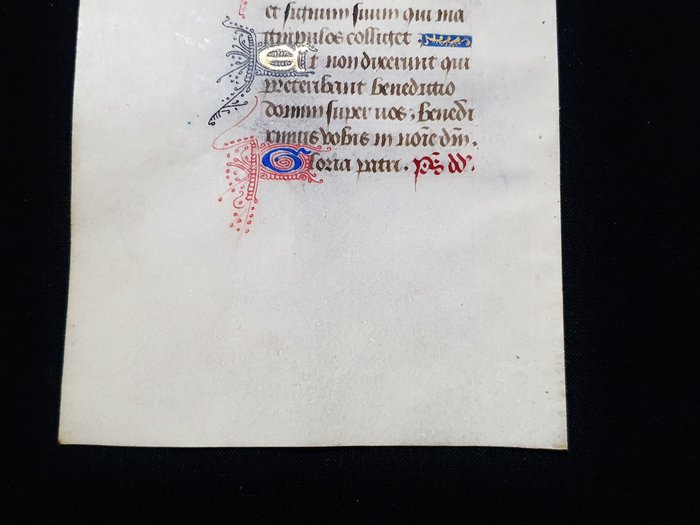 et signum suum qui ma
nipulos colliget
Et non dixerunt qui
preteribant benedictio
domini super uos : benedi
ximus vobis in noīe dn̄i.
Gloria patri. p̄s dd̄.